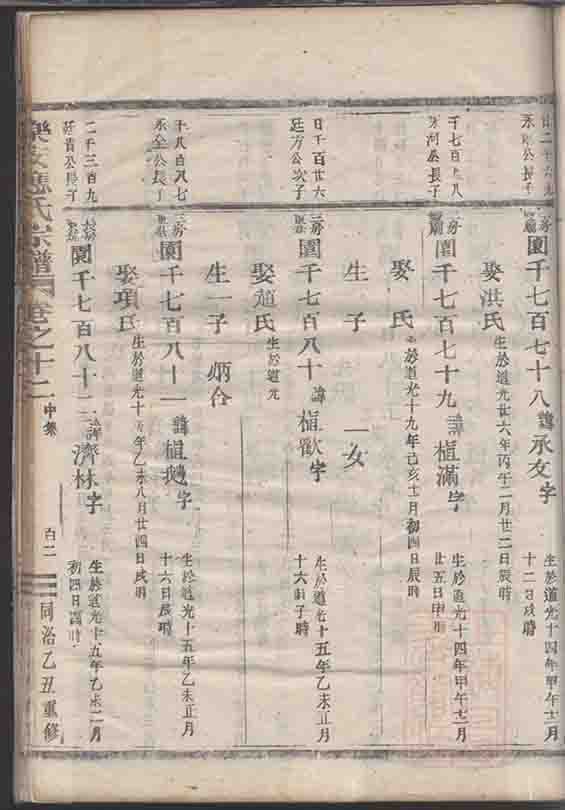 永公長子
房園千七百七十八諱承友字 生於道光十四年甲午十二月
十二日戌時
娶洪氏 生於道光廿六年丙午二月廿二日辰時
千七百
河公長子
房園千七百七十九諱植滿字 生於道光十四年甲午十二月
廿五日申時
娶 氏 生於道光十九年己亥十二月初四日辰時
生 子 一女
千百廿六
廷方公次子
三房園千七百八十諱植歡字 生於道光十五年乙未正月
十六日子時
娶趙氏 生於道光
生一子 炳
千八百八七
永全公長子
三房園千七百八十一諱植字 生於道光十五年乙未正月
十六日辰時
娶項氏 生於道光十年乙未八月廿四日戌時
二千三百九
廷貴公長子
園千七百八十二諱濟林字 生於道光十五年乙未二月
初四日酉時
樂安應氏宗譜 卷之十二 中集 百二 同治乙丑重修